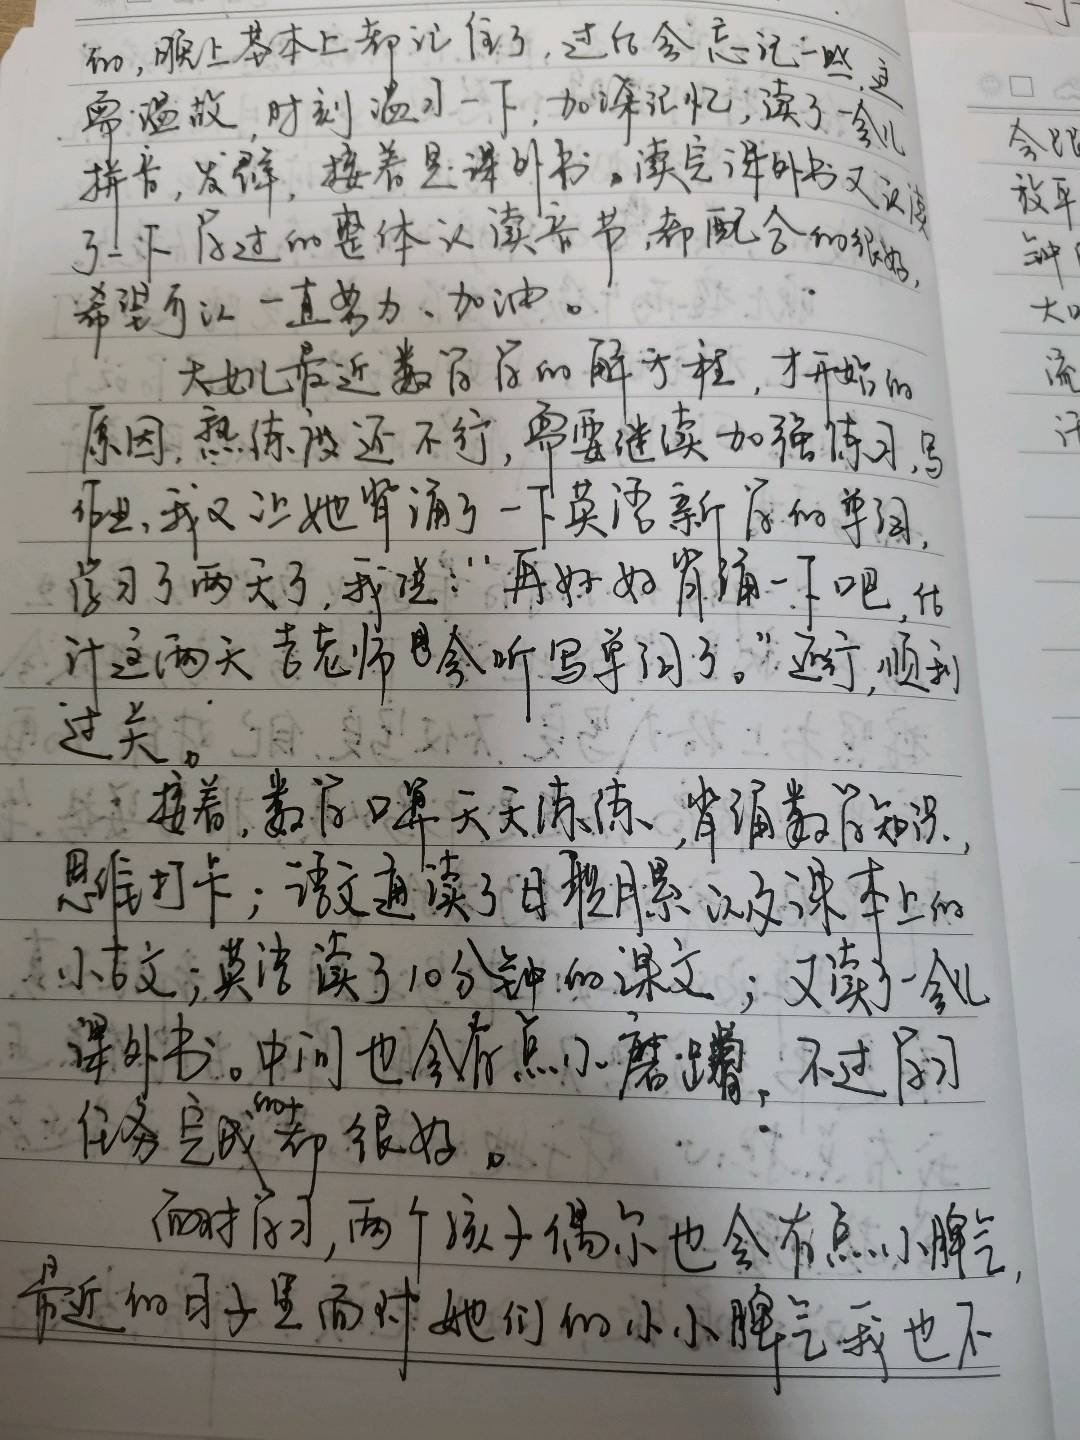 的，晚上基本上都记住了，过后会忘记一些，这
需温故，时刻温习一下，加深记忆，读了一会儿
拼音，发音，接着是课外书。读完课外书又认读
了一下学过的整体认读音节，都配合的很好，
希望可以一直努力、加油。
大女儿最近数学学的解方程，才开始的
原因，熟练度还不行，需要继续加强练习，写
作业，我又让她背诵了一下英语新学的单词，
学习了两天了，我说：“再好好背诵一下吧，估
计这两天吉老师会听写单词了。”还行，顺利
过关。
接着，数学口算天天练练，背诵数学知识，
思维打卡；语文通读了日积月累以及课本上的
小古文；英语读了10分钟的课文；又读了一会儿
课外书。中间也会有点小磨蹭，不过学习
任务完成的都很好。
面对学习，两个孩子偶尔也会有点小脾气，
最近的日子里面对她们的小小脾气我也不
会跟
放平
钟
大口
流